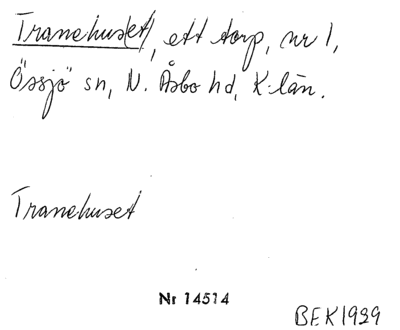 Tranehus(et), ett torp, nr 1,
Össjö sn, N. Åsbo hd, K-län.
Tranehuset
Nr 14514
BEK1939